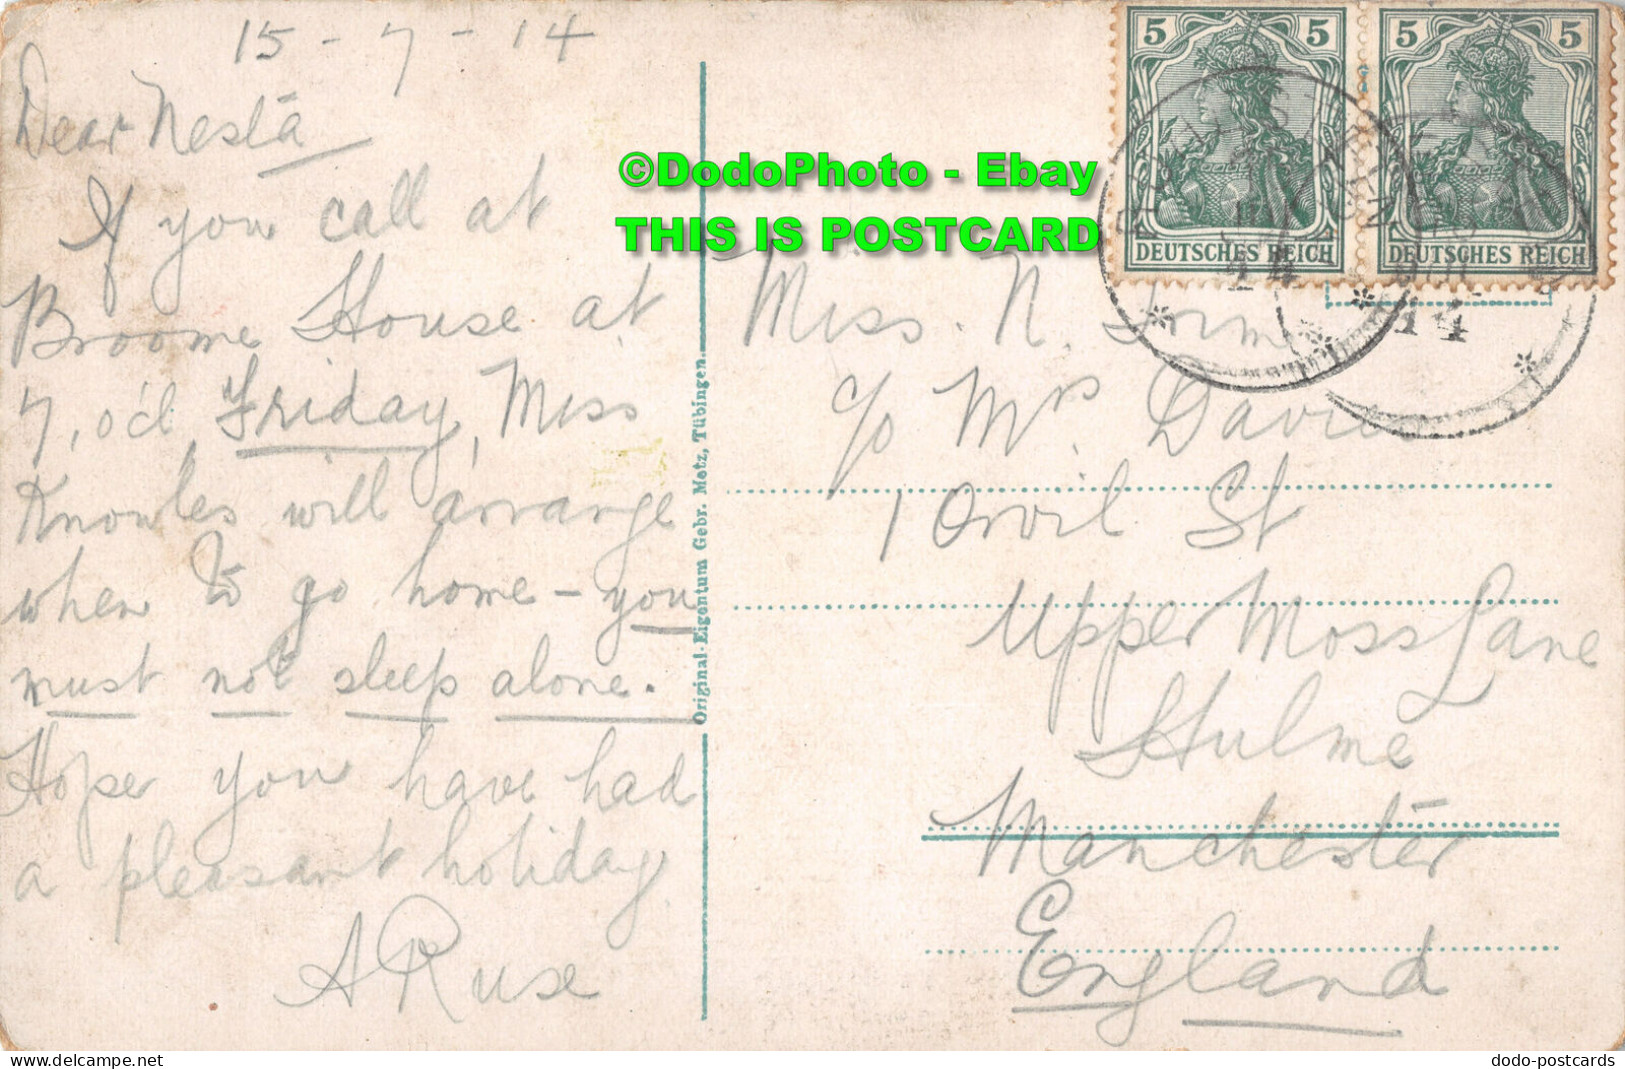 15-7-14
Dear Nesta
If you call at
Broome House at
7, o'cl Friday, Miss
Knowles will arrange
when to go home - you
must not sleep alone.
Hope you have had
a pleasant holiday
A Ruse
©DodoPhoto - Ebay
THIS IS POSTCARD
Original-Eigentum Gebr. Metz, Tübingen.
5 5
DEUTSCHES REICH
5 5
DEUTSCHES REICH
14
14
Miss. N.
c/o Mrs. Davies
1 Orvil St
Upper Moss Lane
Hulme
Manchester
England
delcampe.net
dodo-postcards